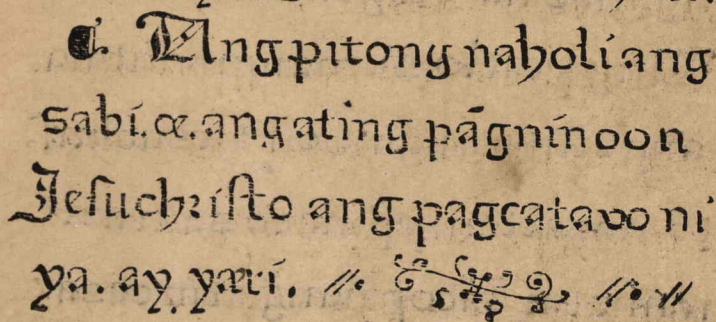 ¶. Ang pitong naholi ang
sabi. œ. ang ating pāgninoon
Jeſuchriſto ang pagcatavo ni
ya. ay. yæri. //.